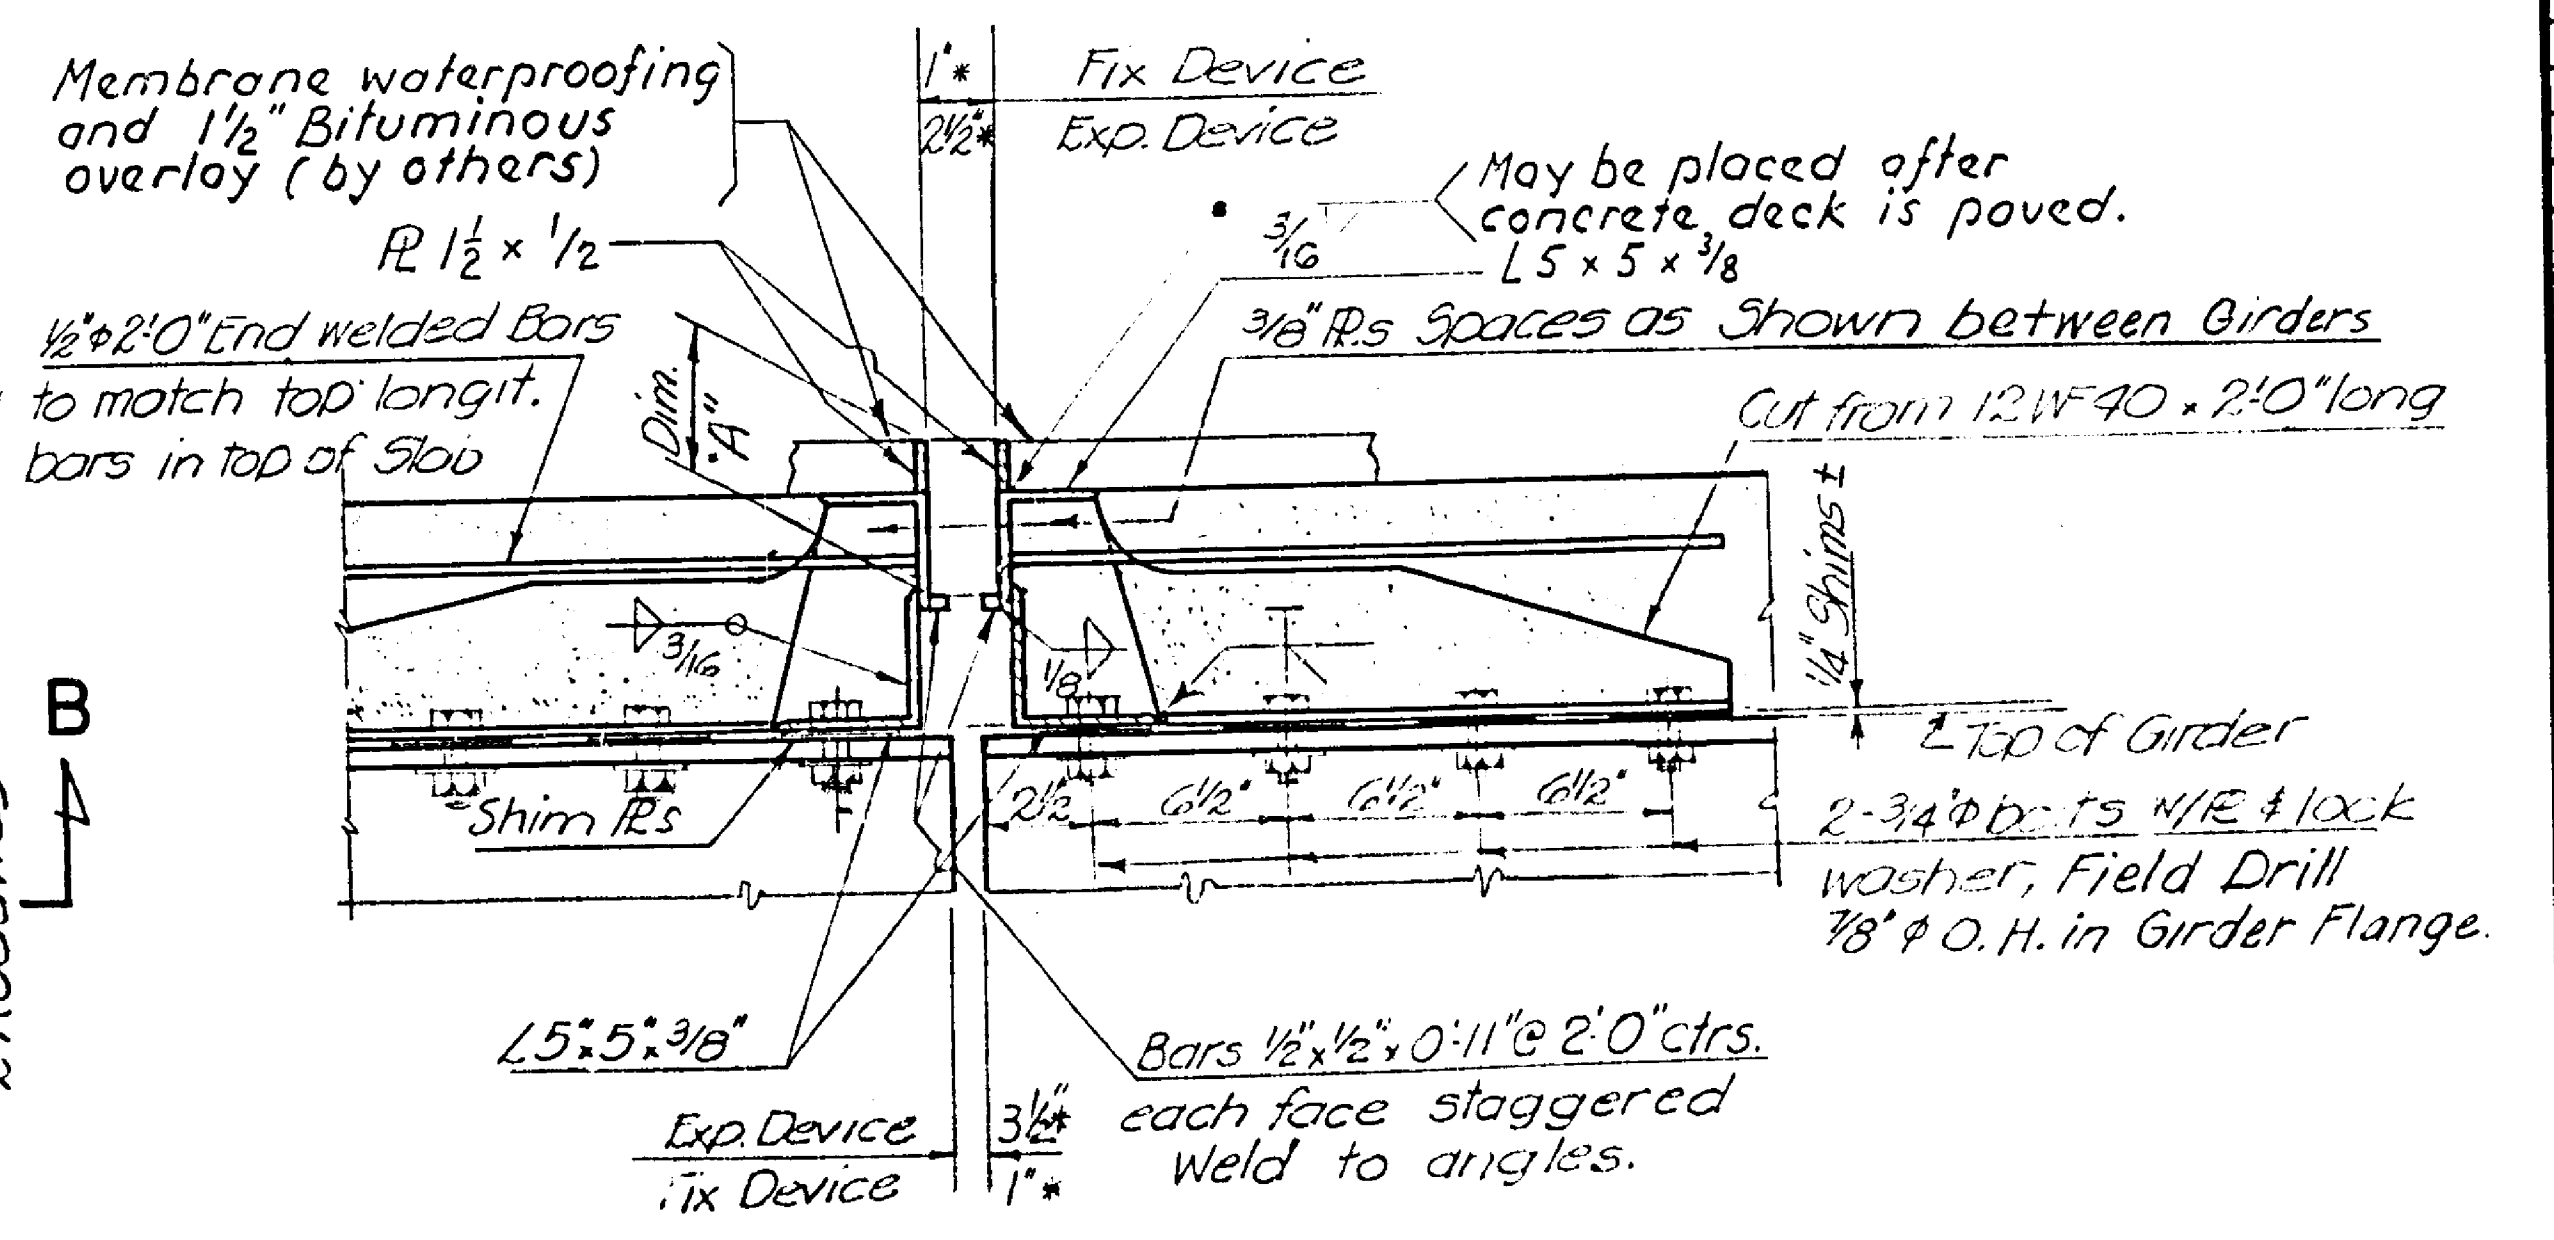 Membrane waterproofing
and 1 1/2" Bituminous
overlay (by others)
1"* Fix Device
2 1/2"* Exp. Device
May be placed after
concrete deck is paved.
3/16
L 5 x 5 x 3/8
PL 1 1/2 x 1/2
1/2"φ 2'-0" End welded Bars
to match top longit.
bars in top of Slab
Dim. "A"
3/8" PLs Spaces as Shown between Girders
Cut from 12WF40 x 2'-0" long
1/4" Shims ±
3/16
1/8
B
℄ Top of Girder
Shim PLs
2 1/2 6 1/2" 6 1/2" 6 1/2"
2-3/4"φ bolts W/PL & lock
washer, Field Drill
7/8"φ O.H. in Girder Flange.
L5"x5"x3/8"
Bars 1/2"x1/2"x0'-11"@ 2'-0" ctrs.
each face staggered
Weld to angles.
Exp. Device 3 1/2"*
Fix Device 1"*